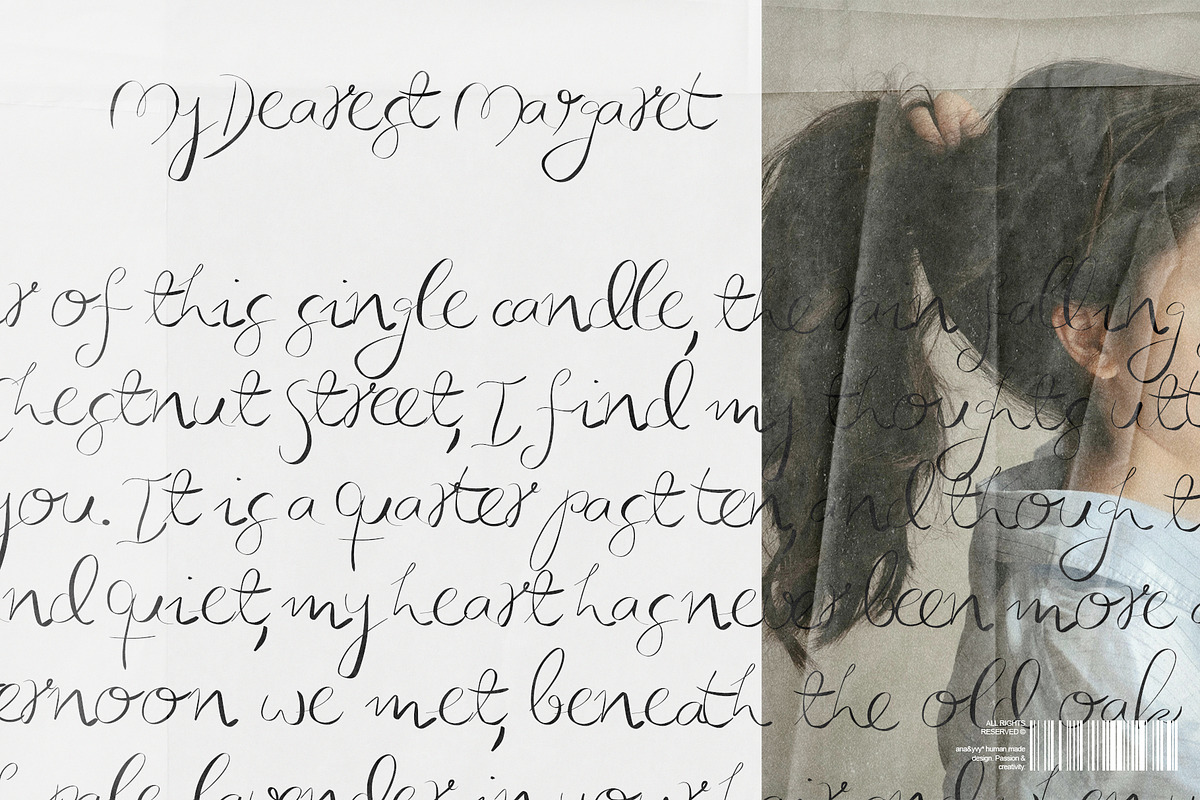 My Dearest Margaret
of this single candle, the rain falling
Chestnut Street, I find my thoughts
you. It is a quarter past ten, and though
quiet, my heart has never been more
we met, beneath the old oak
pale lavender in your hair and
ALL RIGHTS
RESERVED ©
ana&yvy* human made
design. Passion &
creativity.